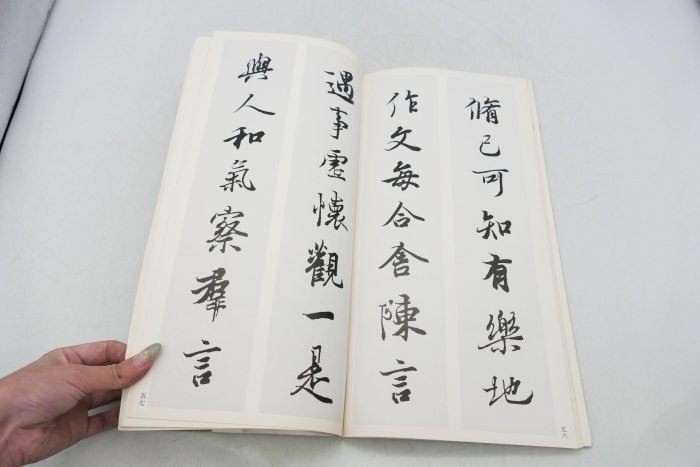 脩己可知有樂地
作文每合舎陳言
五六
遇事虚懷觀一是
與人和氣察羣言
五七